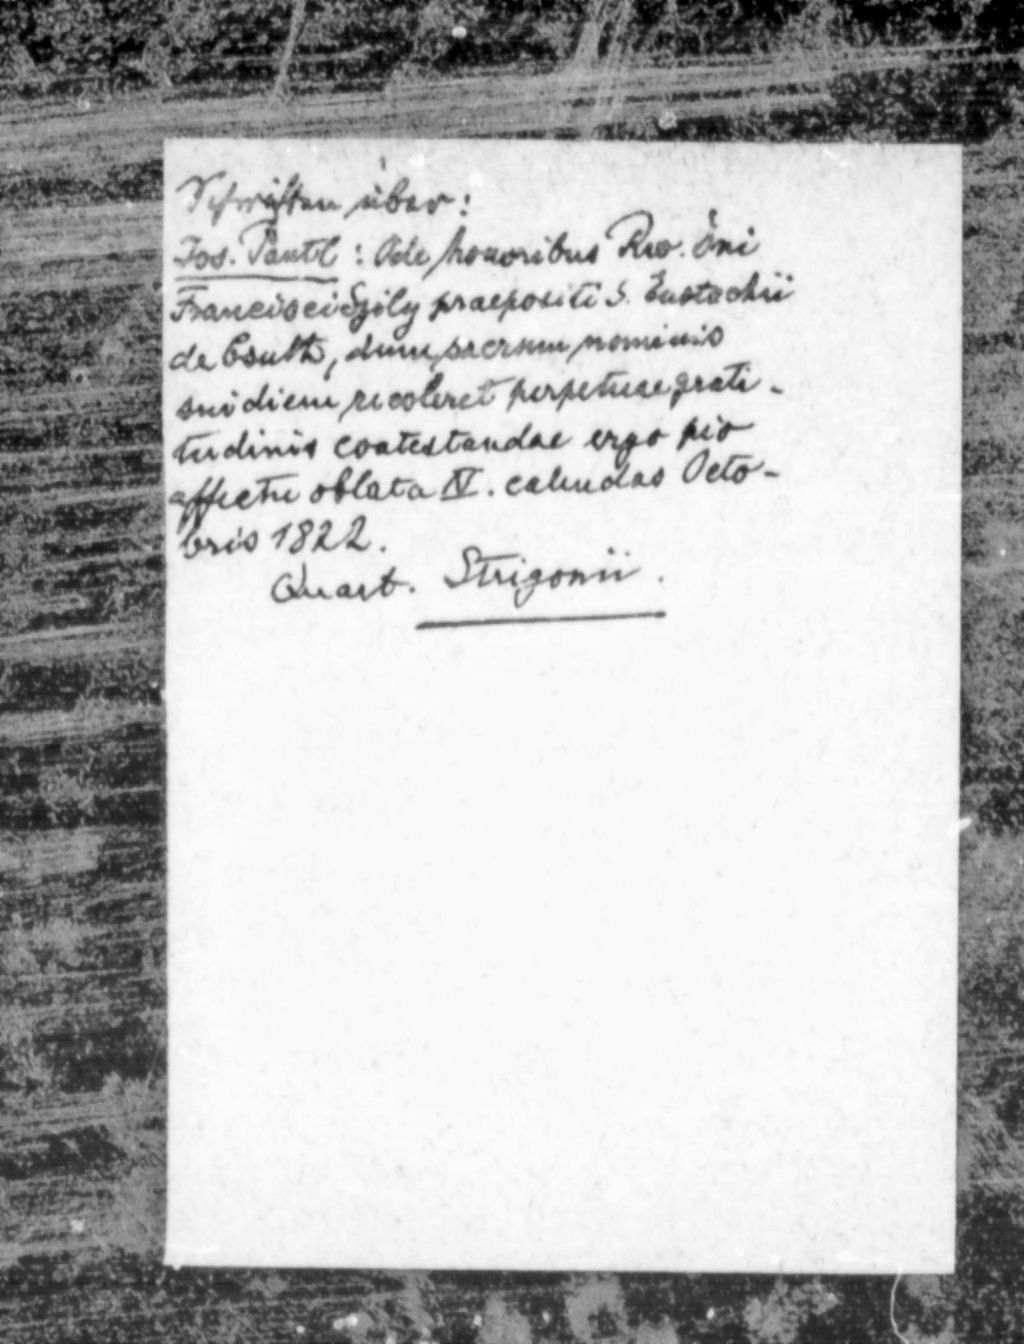 Schriften über:
Jos. Päntl: Ode honoribus Rev. Dni
Francisci Szily praepositi S. Eustachii
de Csuth, dum sacrum nominis
sui diem recoleret perpetuae grati-
tudinis contestandae ergo pio
affectu oblata IV. calendas Octo-
bris 1822.
Quart. Strigonii.